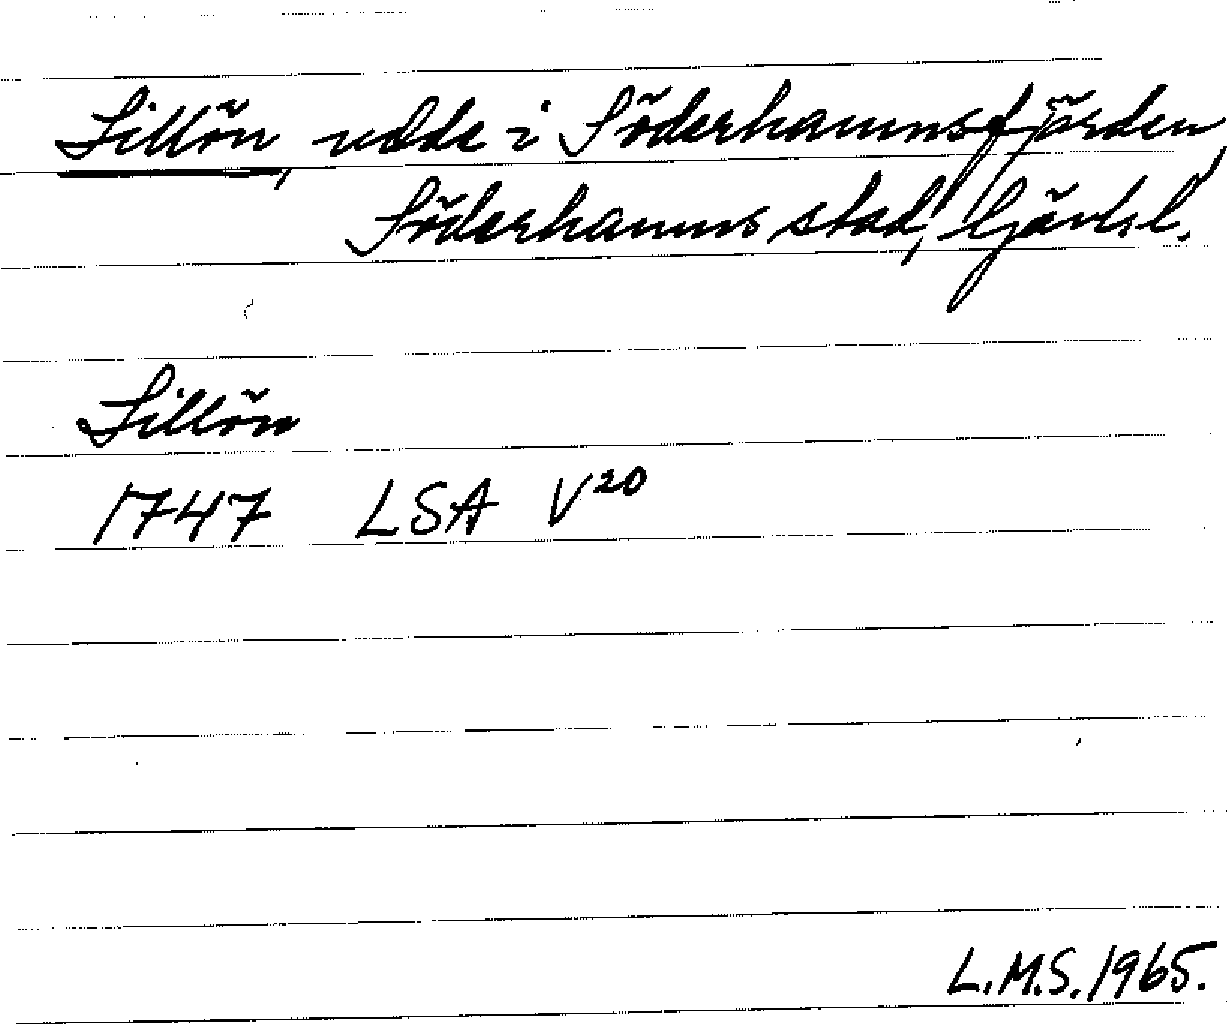 Lillön, udde i Söderhamnsfjärden,
Söderhamns stad, Gävlel.
Lillön
1747 LSA V²⁰
L.M.S. 1965.